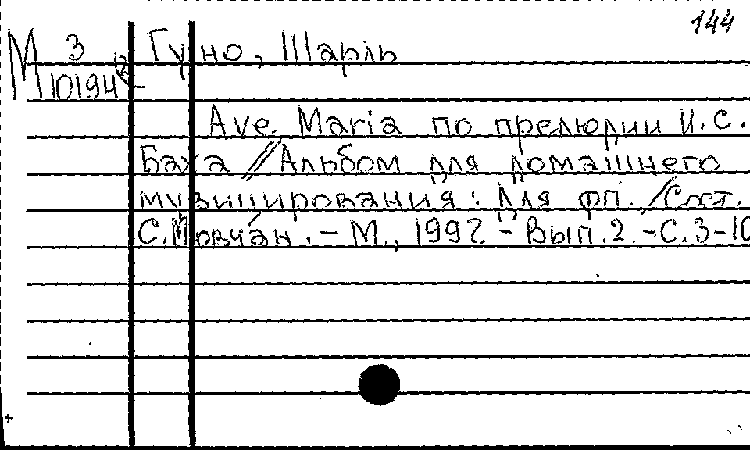 144
М 3 Гуно, Шарль
10194
Ave. Maria по прелюдии И.С.
Баха // Альбом для домашнего
музицирования: Для фп. / Сост.
С. Мовчан. - М., 1992. - Вып. 2. - С. 3-10